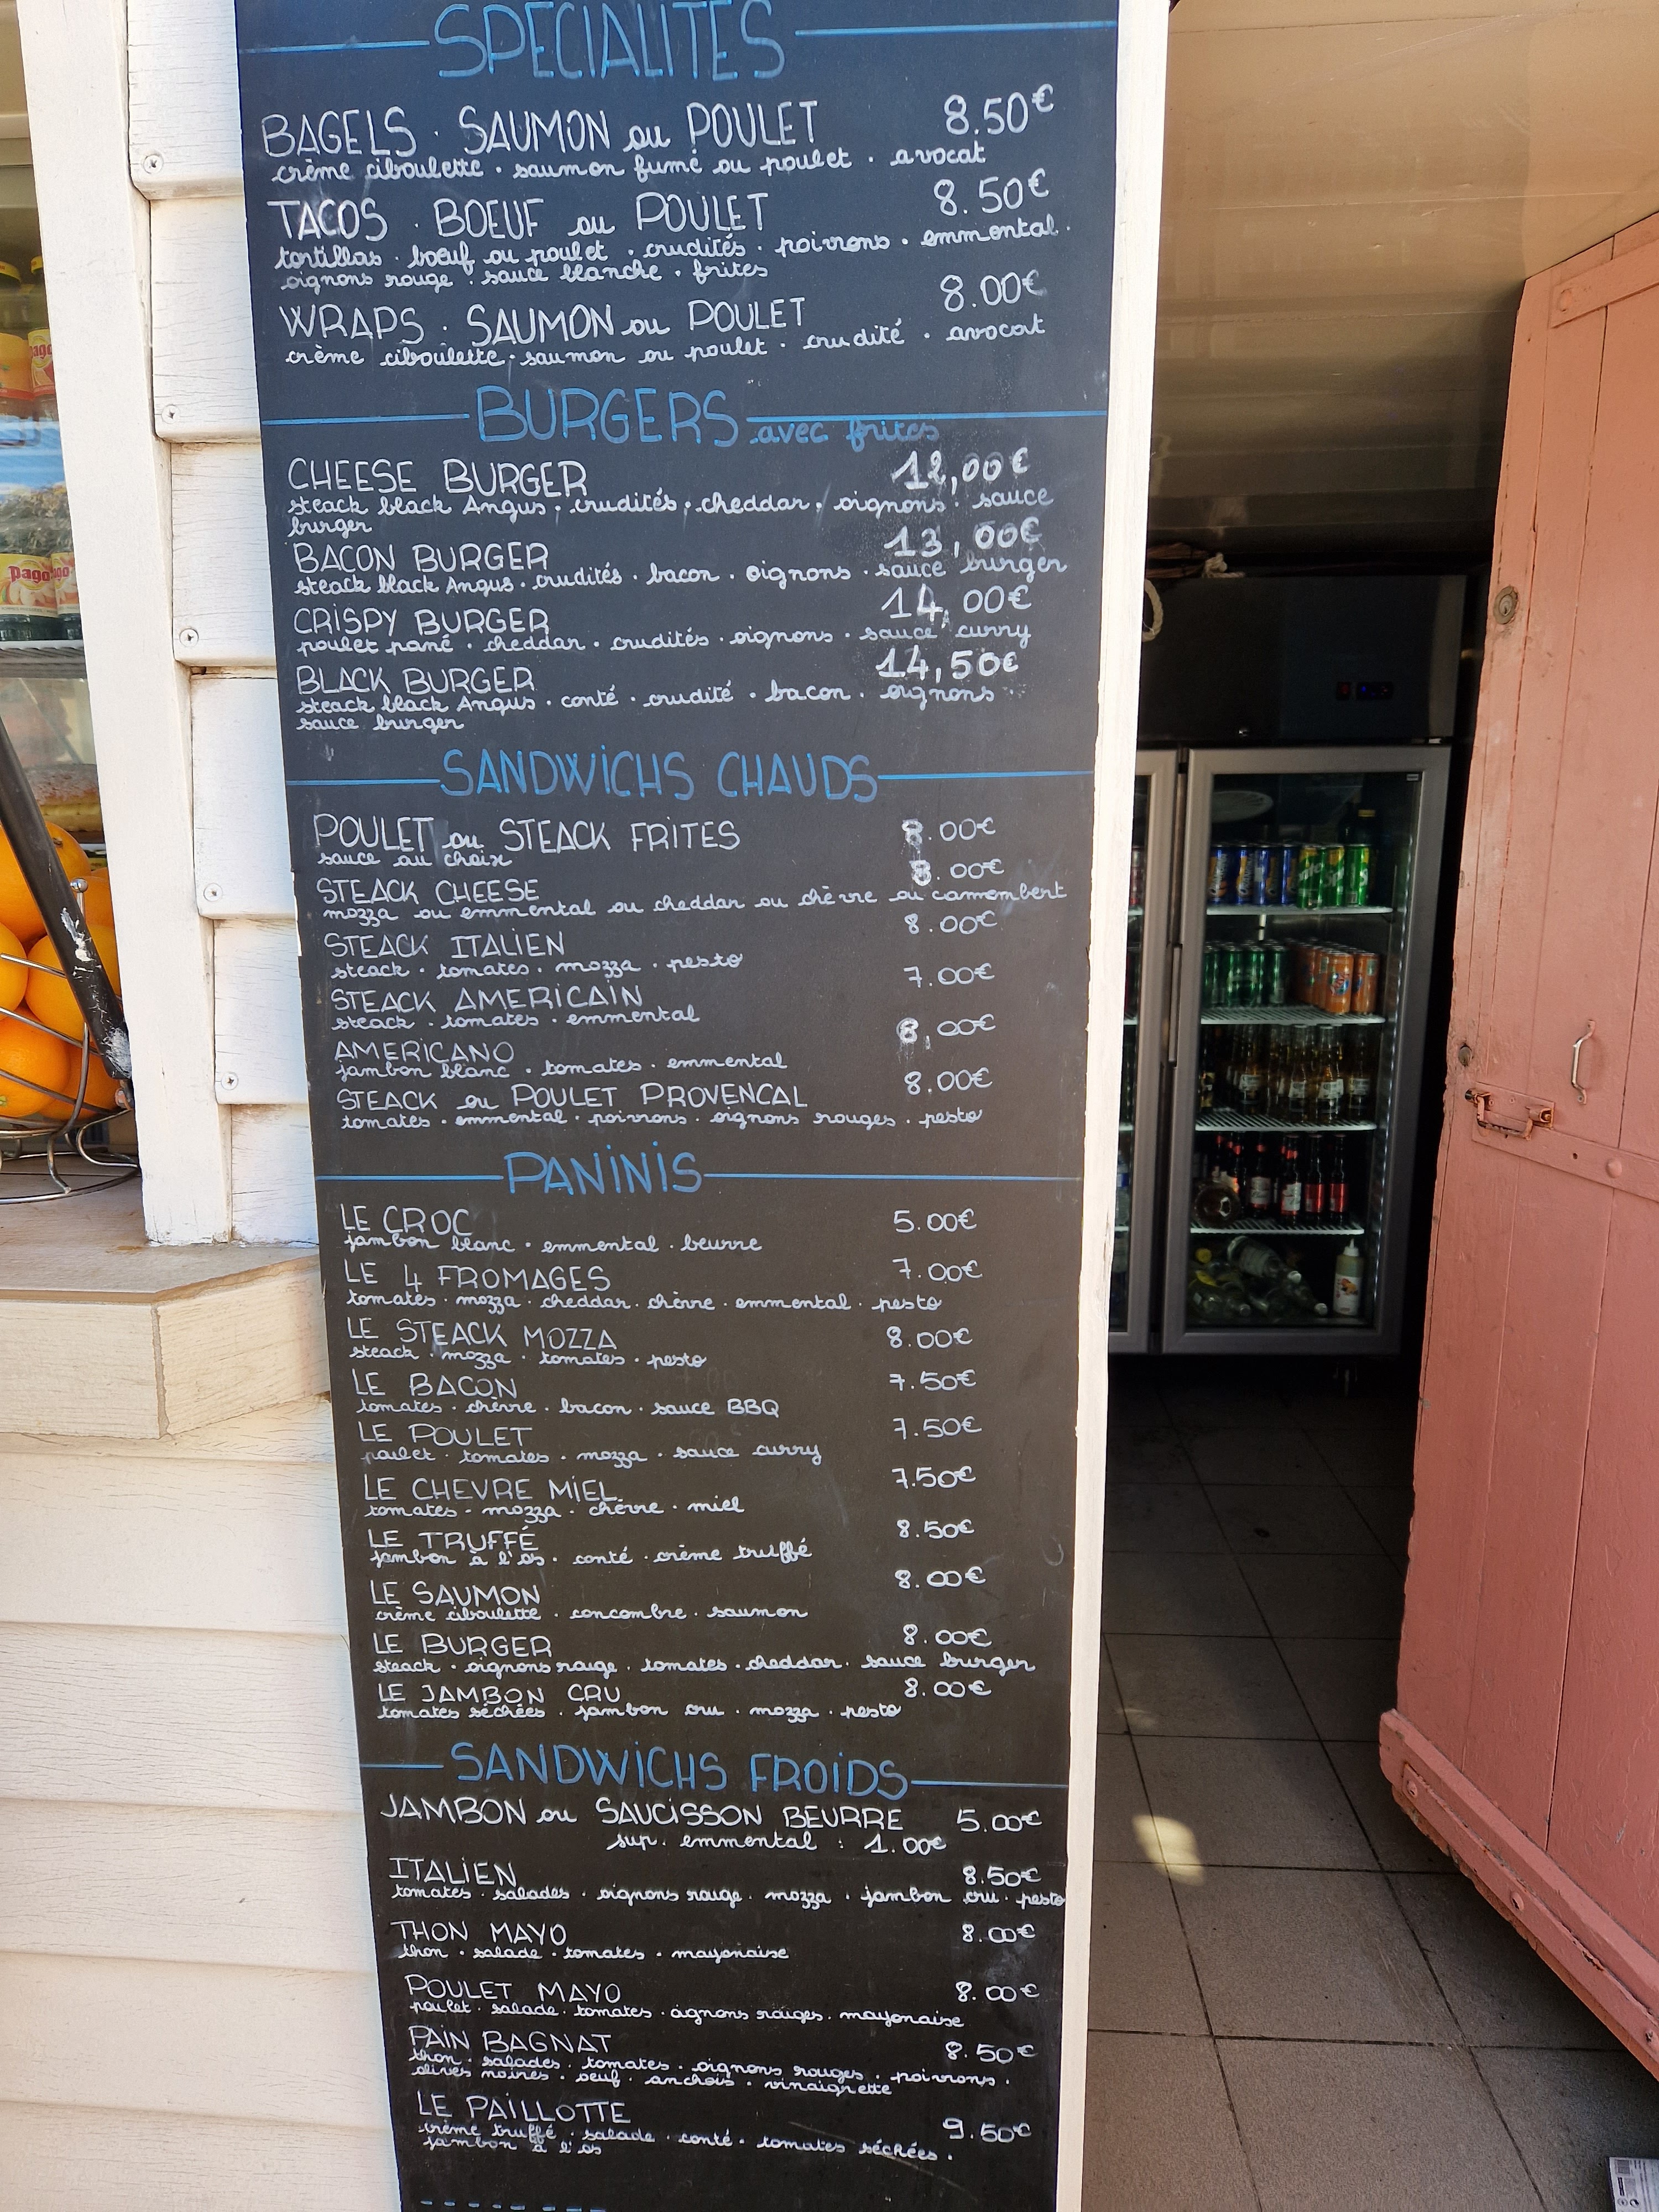 SPECIALITES
BAGELS · SAUMON ou POULET 8.50€
crème ciboulette · saumon fumé ou poulet · avocat
TACOS · BOEUF ou POULET 8.50€
tortillas · boeuf ou poulet · crudités · poivrons · emmental ·
oignons rouge · sauce blanche · frites
WRAPS · SAUMON ou POULET 8.00€
crème ciboulette · saumon ou poulet · crudité · avocat
BURGERS avec frites
CHEESE BURGER 12,00€
steack black Angus · crudités · cheddar · oignons · sauce
burger
BACON BURGER 13,00€
steack black Angus · crudités · bacon · oignons · sauce burger
CRISPY BURGER 14,00€
poulet pané · cheddar · crudités · oignons · sauce curry
BLACK BURGER 14,50€
steack black Angus · conté · crudité · bacon · oignons
sauce burger
SANDWICHS CHAUDS
POULET ou STEACK FRITES 8.00€
sauce au choix
STEACK CHEESE 8.00€
mozza ou emmental ou cheddar ou chèvre ou camembert
STEACK ITALIEN 8.00€
steack · tomates · mozza · pesto
STEACK AMERICAIN 7.00€
steack · tomates · emmental
AMERICANO 8,00€
jambon blanc · tomates · emmental
STEACK ou POULET PROVENCAL 8.00€
tomates · emmental · poivrons · oignons rouges · pesto
PANINIS
LE CROC 5.00€
jambon blanc · emmental · beurre
LE 4 FROMAGES 7.00€
tomates · mozza · cheddar · chèvre · emmental · pesto
LE STEACK MOZZA 8.00€
steack · mozza · tomates · pesto
LE BACON 7.50€
tomates · chèvre · bacon · sauce BBQ
LE POULET 7.50€
poulet · tomates · mozza · sauce curry
LE CHEVRE MIEL 7.50€
tomates · mozza · chèvre · miel
LE TRUFFÉ 8.50€
jambon à l'os · conté · crème truffé
LE SAUMON 8.00€
crème ciboulette · concombre · saumon
LE BURGER 8.00€
steack · oignons rouge · tomates · cheddar · sauce burger
LE JAMBON CRU 8.00€
tomates séchées · jambon cru · mozza · pesto
SANDWICHS FROIDS
JAMBON ou SAUCISSON BEURRE 5.00€
sup. emmental : 1.00€
ITALIEN 8.50€
tomates · salades · oignons rouge · mozza · jambon cru · pesto
THON MAYO 8.00€
thon · salade · tomates · mayonaise
POULET MAYO 8.00€
poulet · salade · tomates · oignons rouges · mayonaise
PAIN BAGNAT 8.50€
thon · salades · tomates · oignons rouges · poivrons ·
olives noires · oeuf · anchois · vinaigrette
LE PAILLOTTE 9.50€
crème truffé · salade · conté · tomates séchées ·
jambon à l'os
pago
pago